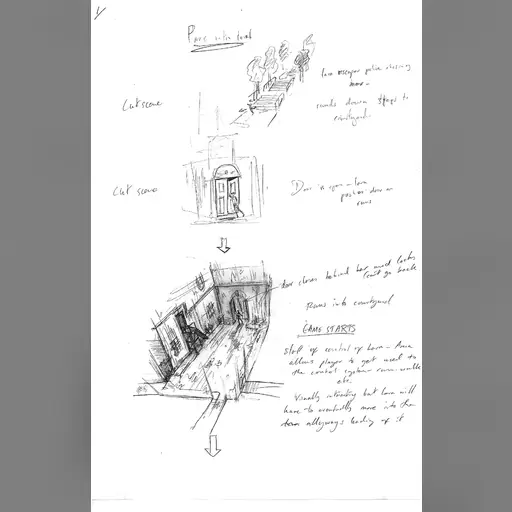 Cut scene
Lara escapes police chasing
her -
runs down steps to
courtyard.
Cut scene
Door is open - Lara
pushes door and
runs
door closes behind her and locks
Can't go back
runs into courtyard
GAME STARTS
Start of control of Lara - Area
allows player to get used to
the control system - run - walk
etc.
Visually interesting but Lara will
have to eventually move into the
alleyways leading of it